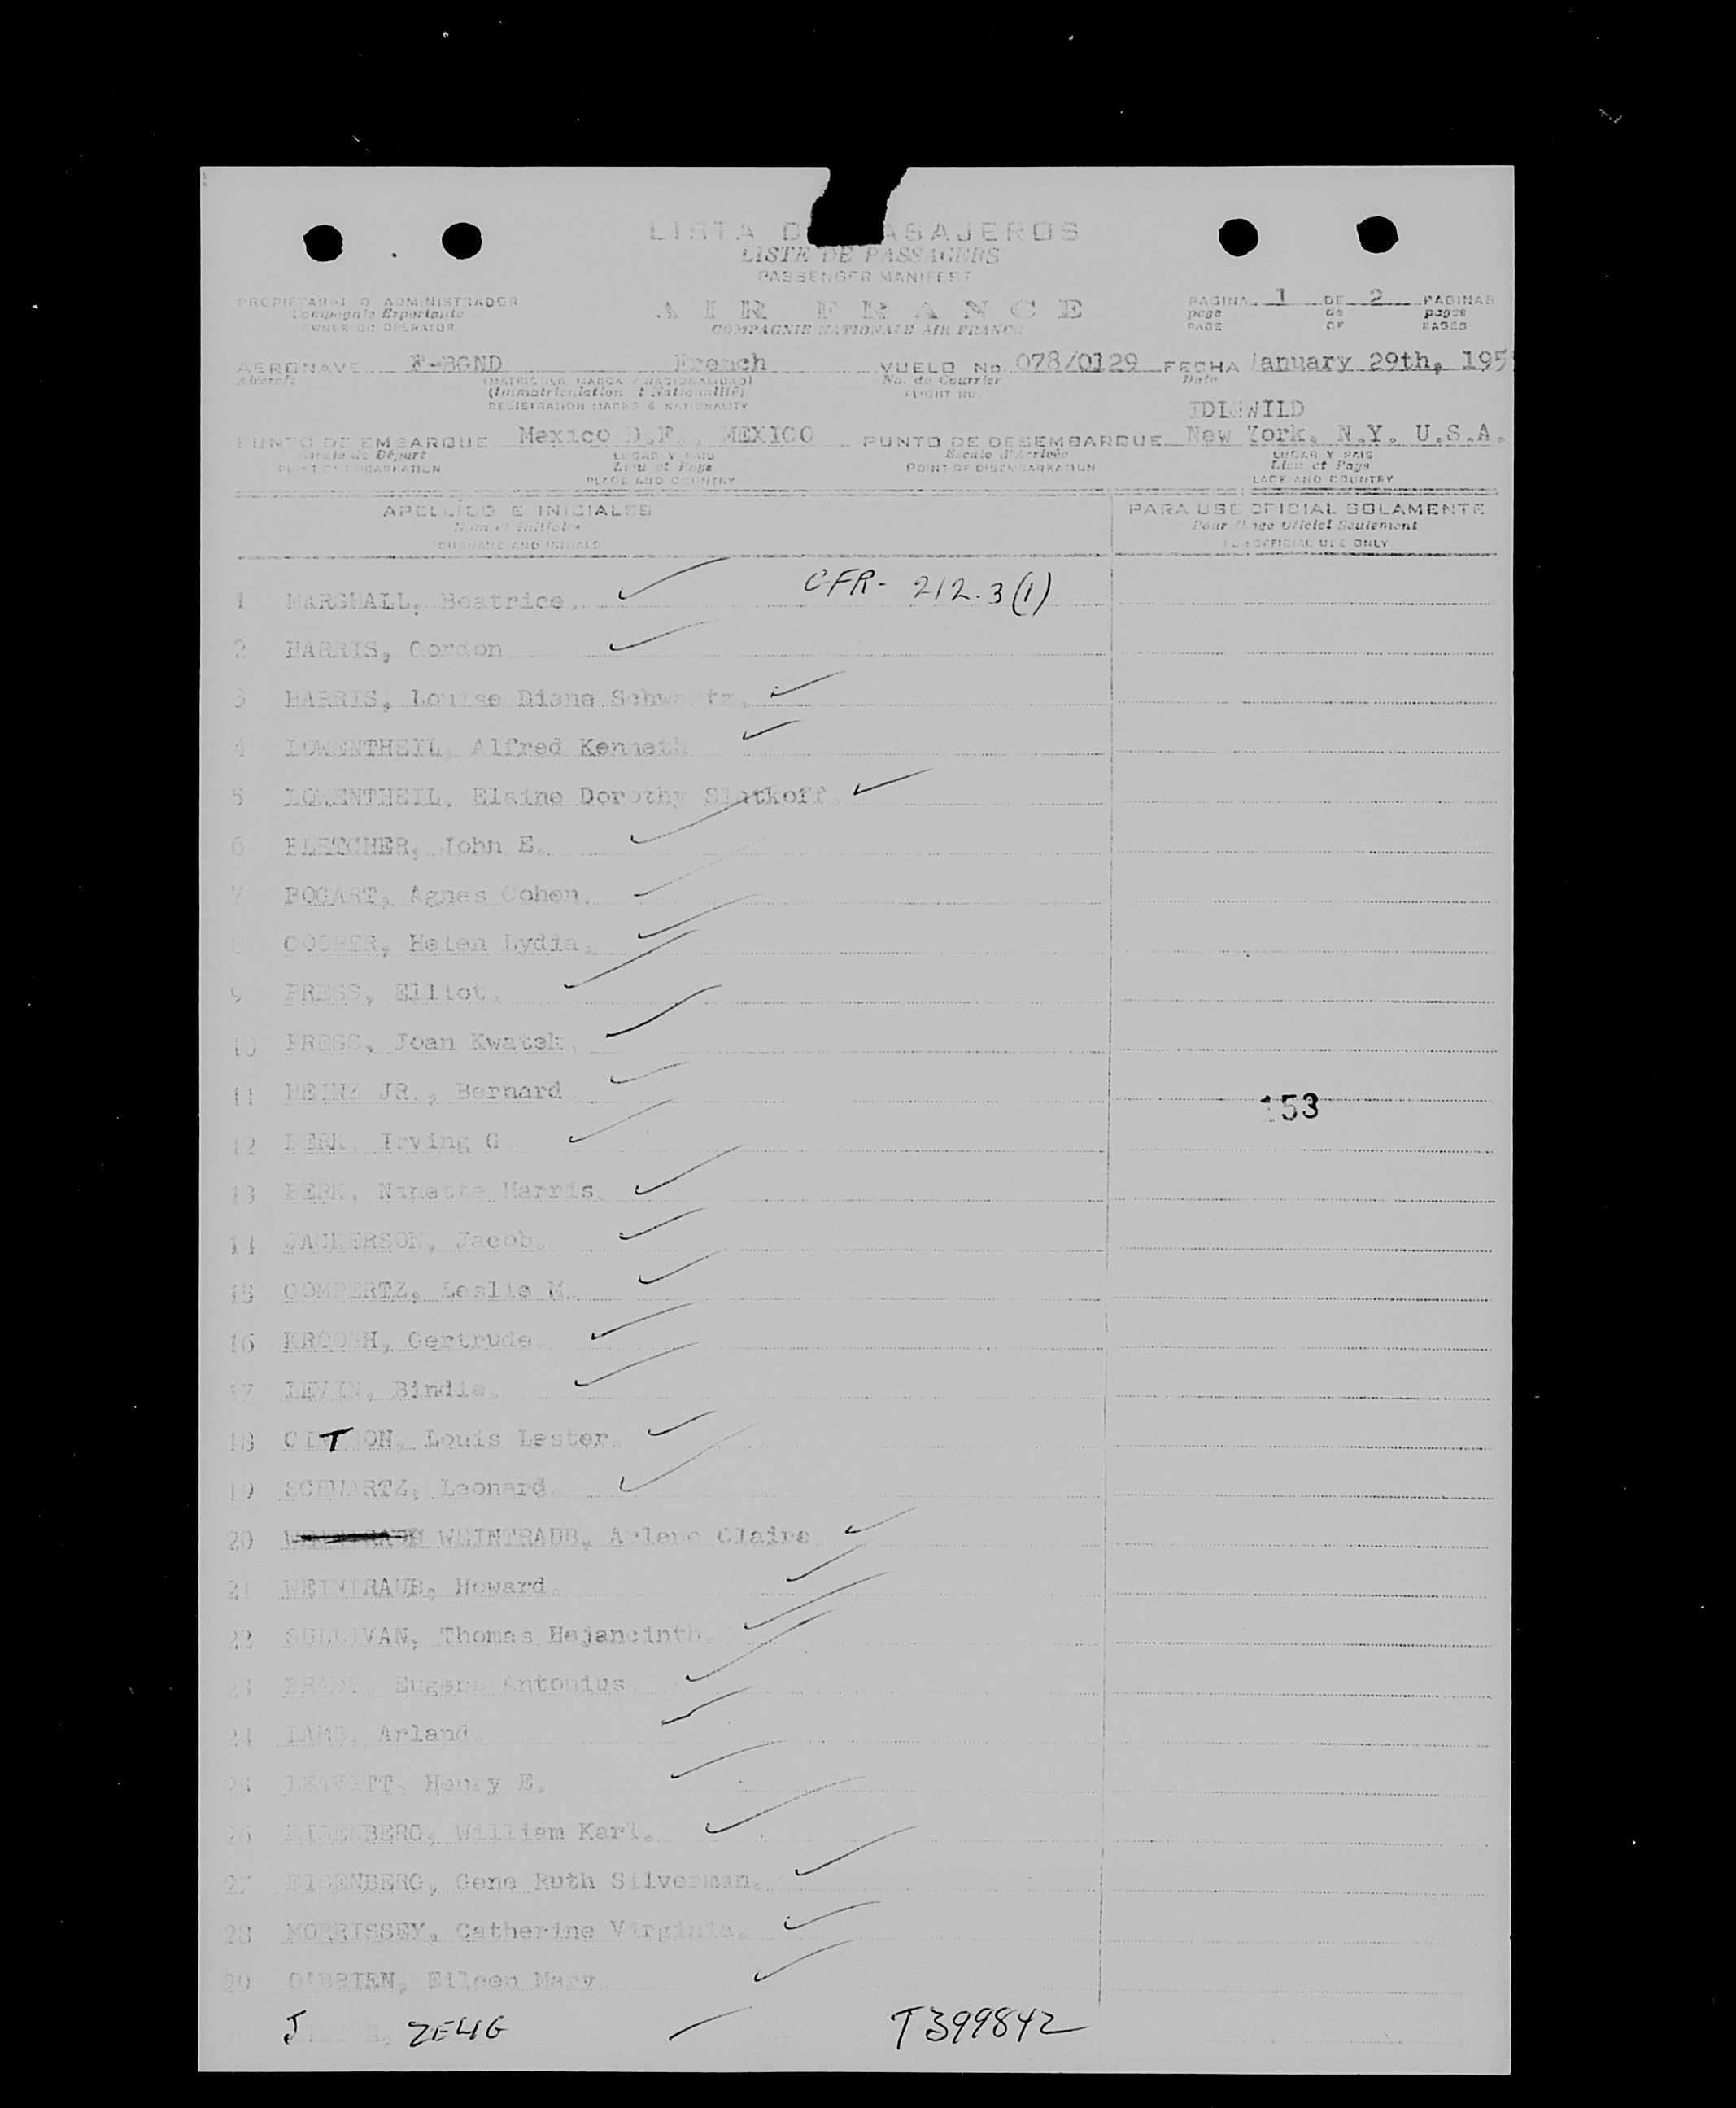 LISTA D ASAJEROS
LISTE DE PASSAGERS
PASSENGER MANIFEST
PROPIETARIO O ADMINISTRADOR
Compagnie Exportante
OWNER OR OPERATOR
AIR FRANCE
COMPAGNIE NATIONALE AIR FRANCE
PAGINA 1 DE 2 PAGINAS
page de pages
PAGE OF PAGES
AERONAVE F-BGND French VUELO No. 078/0129 FECHA January 29th, 195
Aircraft (MATRICULA MARCA Y NACIONALIDAD) No. de Courrier Date
(Immatriculation et Nationalité) FLIGHT NO.
REGISTRATION MARKS & NATIONALITY
IDLEWILD
PUNTO DE EMBARQUE Mexico D.F., MEXICO PUNTO DE DESEMBARQUE New York, N.Y. U.S.A.
Escale de Départ LUGAR Y PAIS Escale d'Arrivée LUGAR Y PAIS
POINT OF EMBARKATION Lieu et Pays POINT OF DISEMBARKATION Lieu et Pays
PLACE AND COUNTRY LACE AND COUNTRY
APELLIDO E INICIALES PARA USE OFICIAL SOLAMENTE
Nom et Initiales Pour Usage Officiel Seulement
SURNAME AND INITIALS FOR OFFICIAL USE ONLY
1 MARSHALL, Beatrice. CFR- 212.3(1)
2 HARRIS, Gordon
3 HARRIS, Louise Diane Schwartz.
4 LOWENTHEIL, Alfred Kenneth
5 LOWENTHEIL, Elaine Dorothy Slatkoff
6 FLETCHER, John E.
7 BOGART, Agnes Cohen.
8 COOPER, Helen Lydia.
9 PRESS, Elliot.
10 PRESS, Joan Kwatek.
11 HEINZ JR., Bernard
153
12 BERK, Irving G
13 BERK, Nanette Harris.
14 JACKERSON, Jacob.
15 GOMPERTZ, Leslie M.
16 Gertrude.
17 LEVIN, Bindie.
18 Louis Lester.
19 SCHWARTZ, Leonard.
20 WEINTRAUB, Arlene Claire
21 WEINTRAUB, Howard.
22 SULLIVAN, Thomas Hejancinth.
23 Eugene Antonius
24 Arland.
24 LEAVITT, Henry E.
26 EISENBERG, William Karl.
27 EISENBERG, Gene Ruth Silverman.
28 MORRISSEY, Catherine Virginia.
29 O'BRIEN, Eileen Mary.
J ZELIG T399842